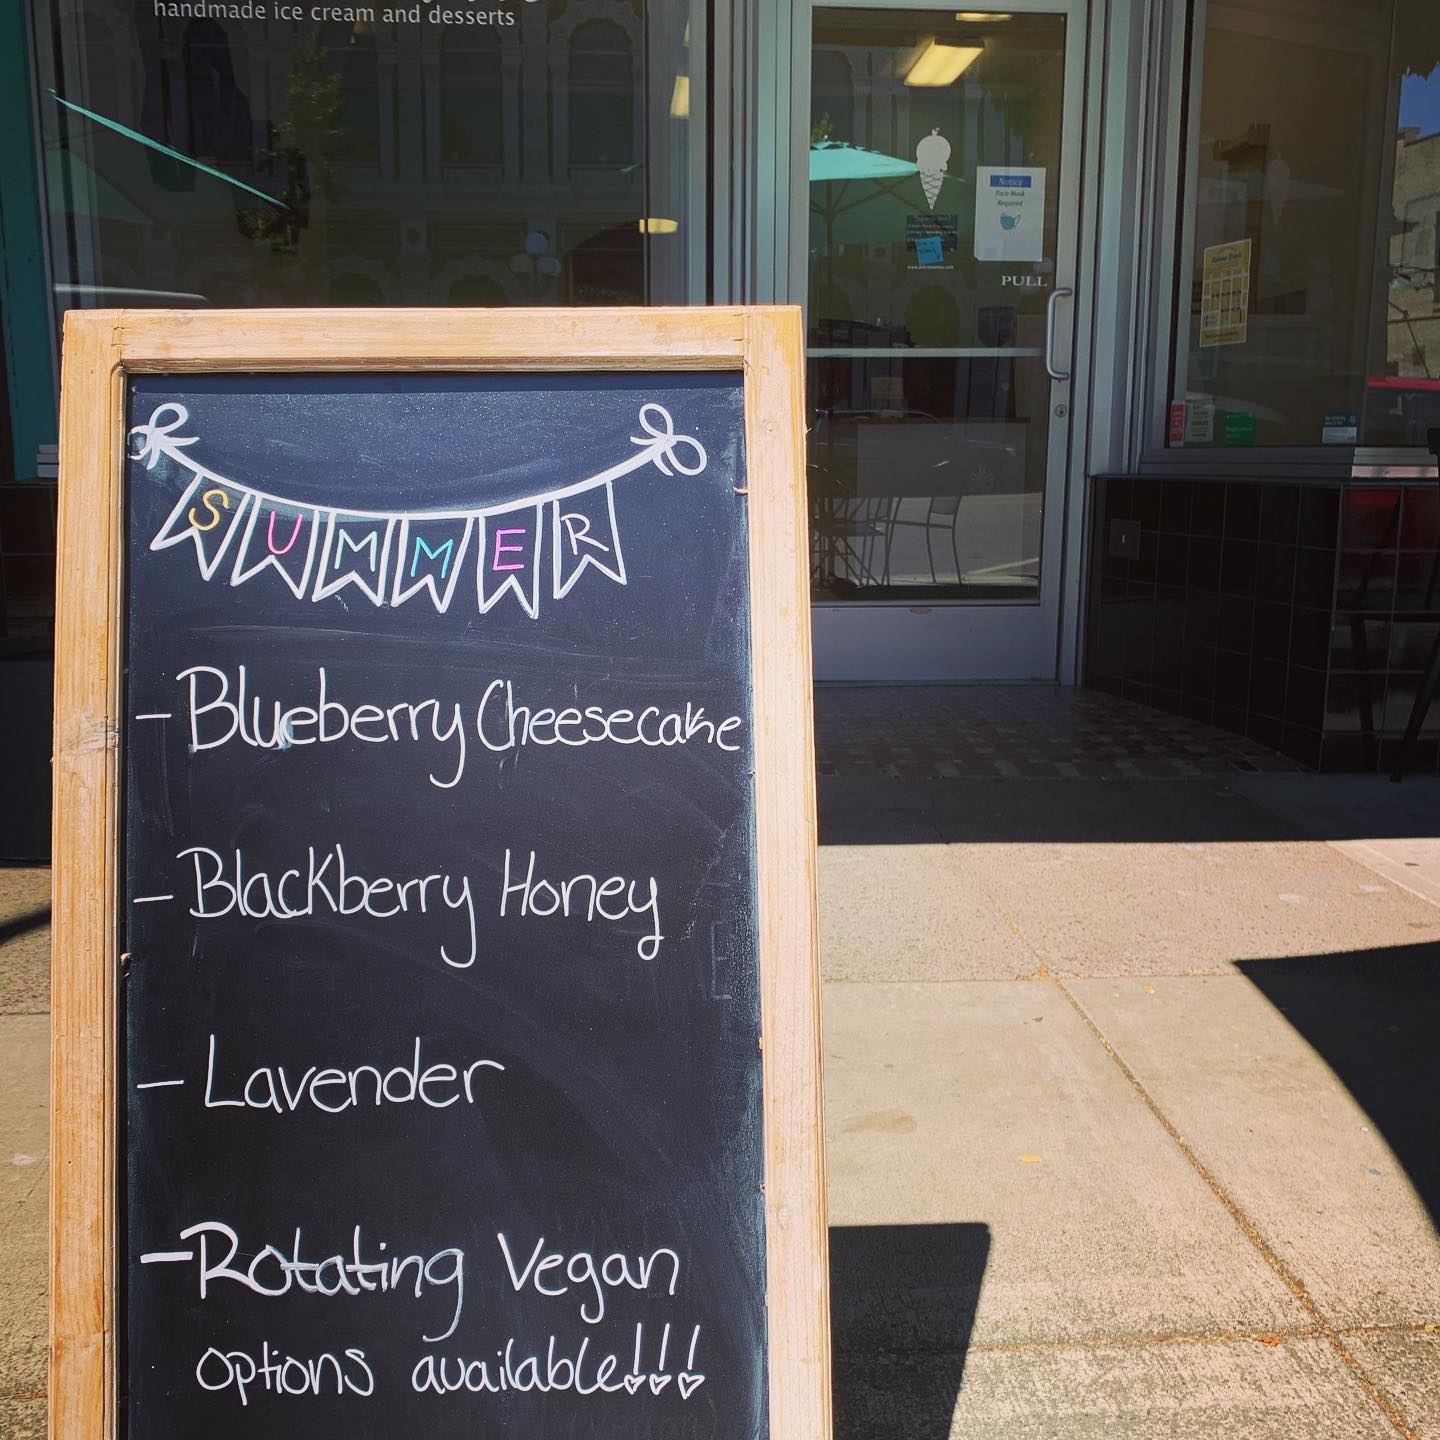 handmade ice cream and desserts
Notice
Face Mask
Required
PULL
SUMMER
- Blueberry Cheesecake
- Blackberry Honey
- Lavender
- Rotating Vegan
options available!!!